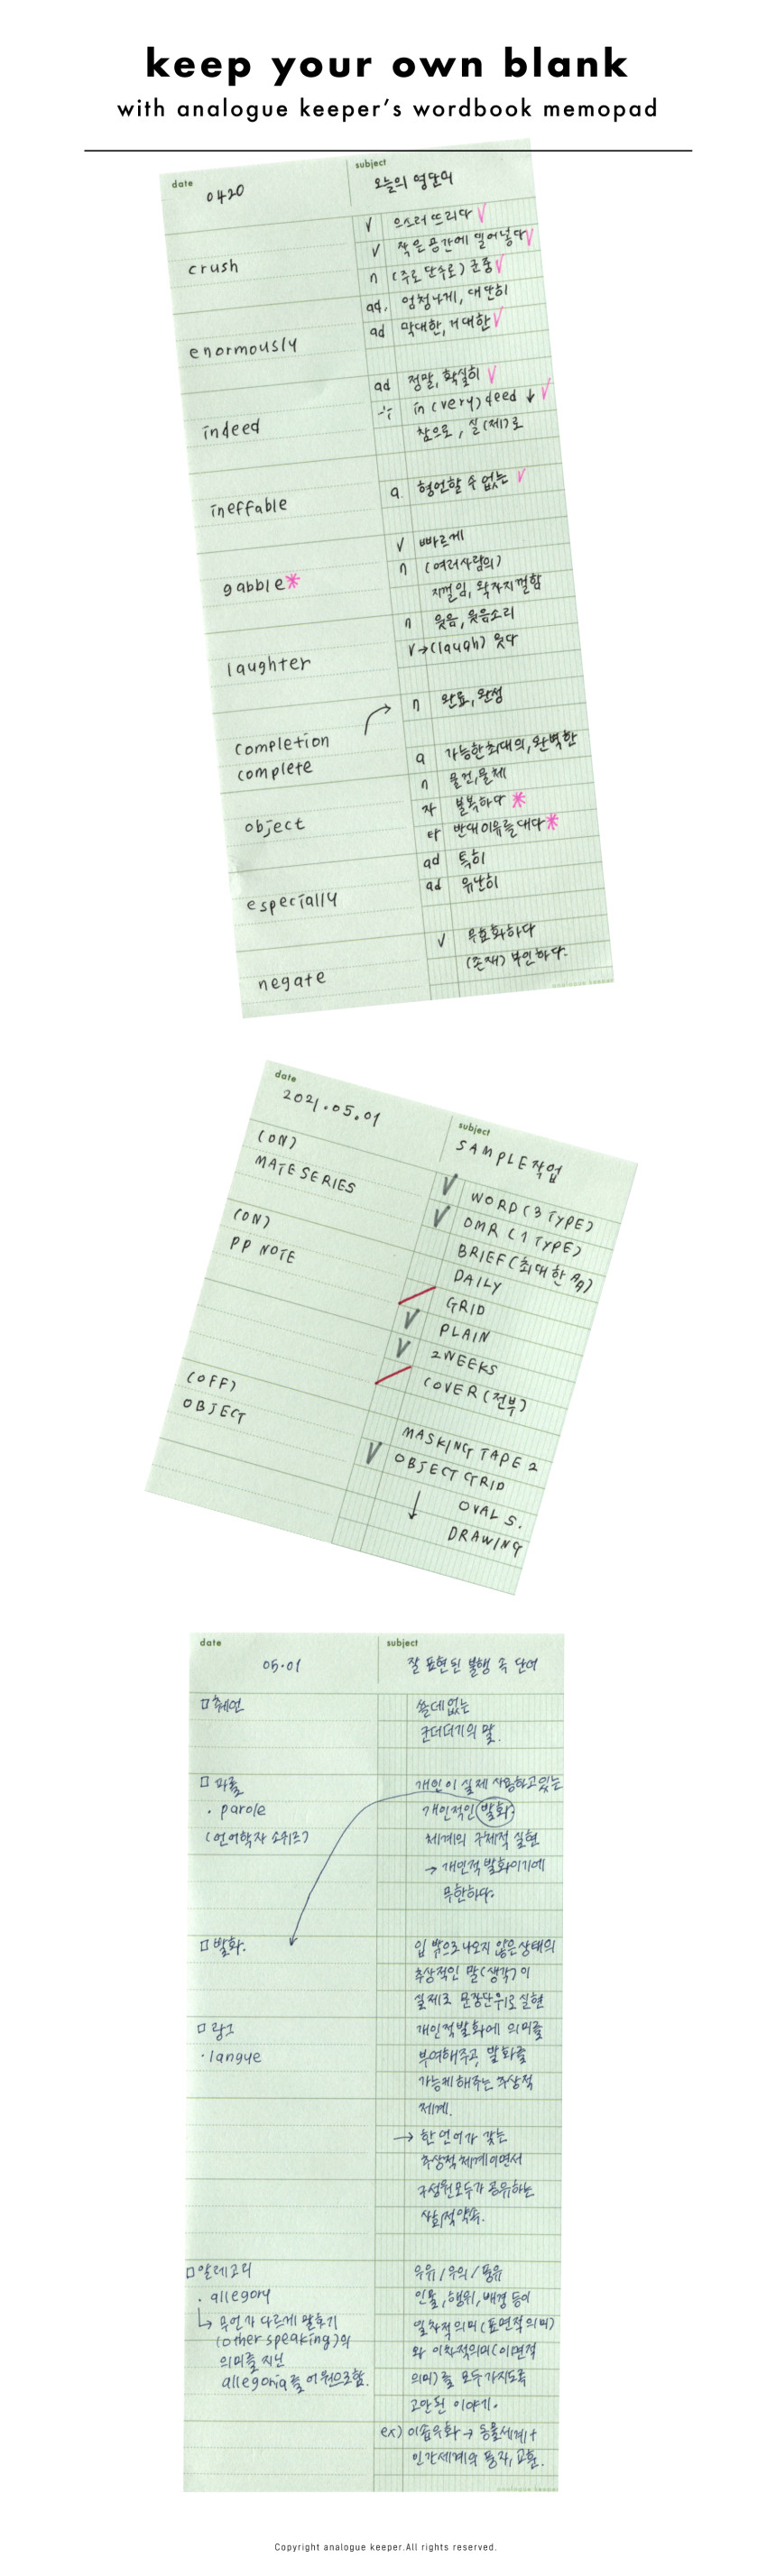 keep your own blank
with analogue keeper's wordbook memopad
date
0420
subject
오늘의 영단어
crush
v 으스러뜨리다 ✓
v 작은 공간에 밀어넣다 ✓
n (주로 단수로) 군중 ✓
enormously
ad. 엄청나게, 대단히
ad 막대한, 거대한 ✓
indeed
ad 정말, 확실히 ✓
in (very) deed ↓ ✓
참으로, 실(제)로
ineffable
a. 형언할 수 없는 ✓
gabble*
v 빠르게
n (여러사람의)
지껄임, 왁자지껄함
laughter
n 웃음, 웃음소리
v→(laugh) 웃다
completion
n 완료, 완성
complete
a 가능한 최대의, 완벽한
object
n 물건, 물체
자 불복하다 *
타 반대이유를 대다 *
especially
ad 특히
ad 유난히
negate
v 무효화하다
(존재) 부인하다.
analogue keeper
date
2021.05.01
subject
SAMPLE작업
(ON)
MATE SERIES
✓ WORD (3 TYPE)
✓ DMR (1 TYPE)
BRIEF (최대한
(ON)
PP NOTE
DAILY
GRID
✓ PLAIN
✓ 2WEEKS
COVER (전부)
(OFF)
OBJECT
MASKING TAPE 2
✓ OBJECT GRID
↓ OVAL S.
DRAWING
date
05.01
subject
잘 표현된 불행 속 단어
□ 췌언
쓸데없는
군더더기의 말.
□ 파롤
· parole
(언어학자 소쉬르)
개인이 실제 사용하고있는
개인적인 발화.
체계의 구체적 실현
→ 개인적 발화이기에
무한하다.
□ 발화.
입 밖으로 나오지 않은 상태의
추상적인 말(생각)이
실제로 문장단위로 실현
□ 랑그
· langue
개인적발화에 의미를
부여해주고, 발화를
가능케 해주는 추상적
체계.
→ 한 언어가 갖는
추상적 체계이면서
구성원모두가 공유하는
사회적약속.
□ 알레고리
· allegory
↳ 무언가 다르게 말하기
(other speaking)의
의미를 지닌
allegoria를 어원으로함.
우유 / 우의 / 풍유
인물, 행위, 배경 등이
일차적의미(표면적의미)
와 이차적의미(이면적
의미)를 모두 가지도록
고안된 이야기.
ex) 이솝우화 → 동물세계 +
인간세계의 풍자, 교훈.
analogue keeper
Copyright analogue keeper.All rights reserved.